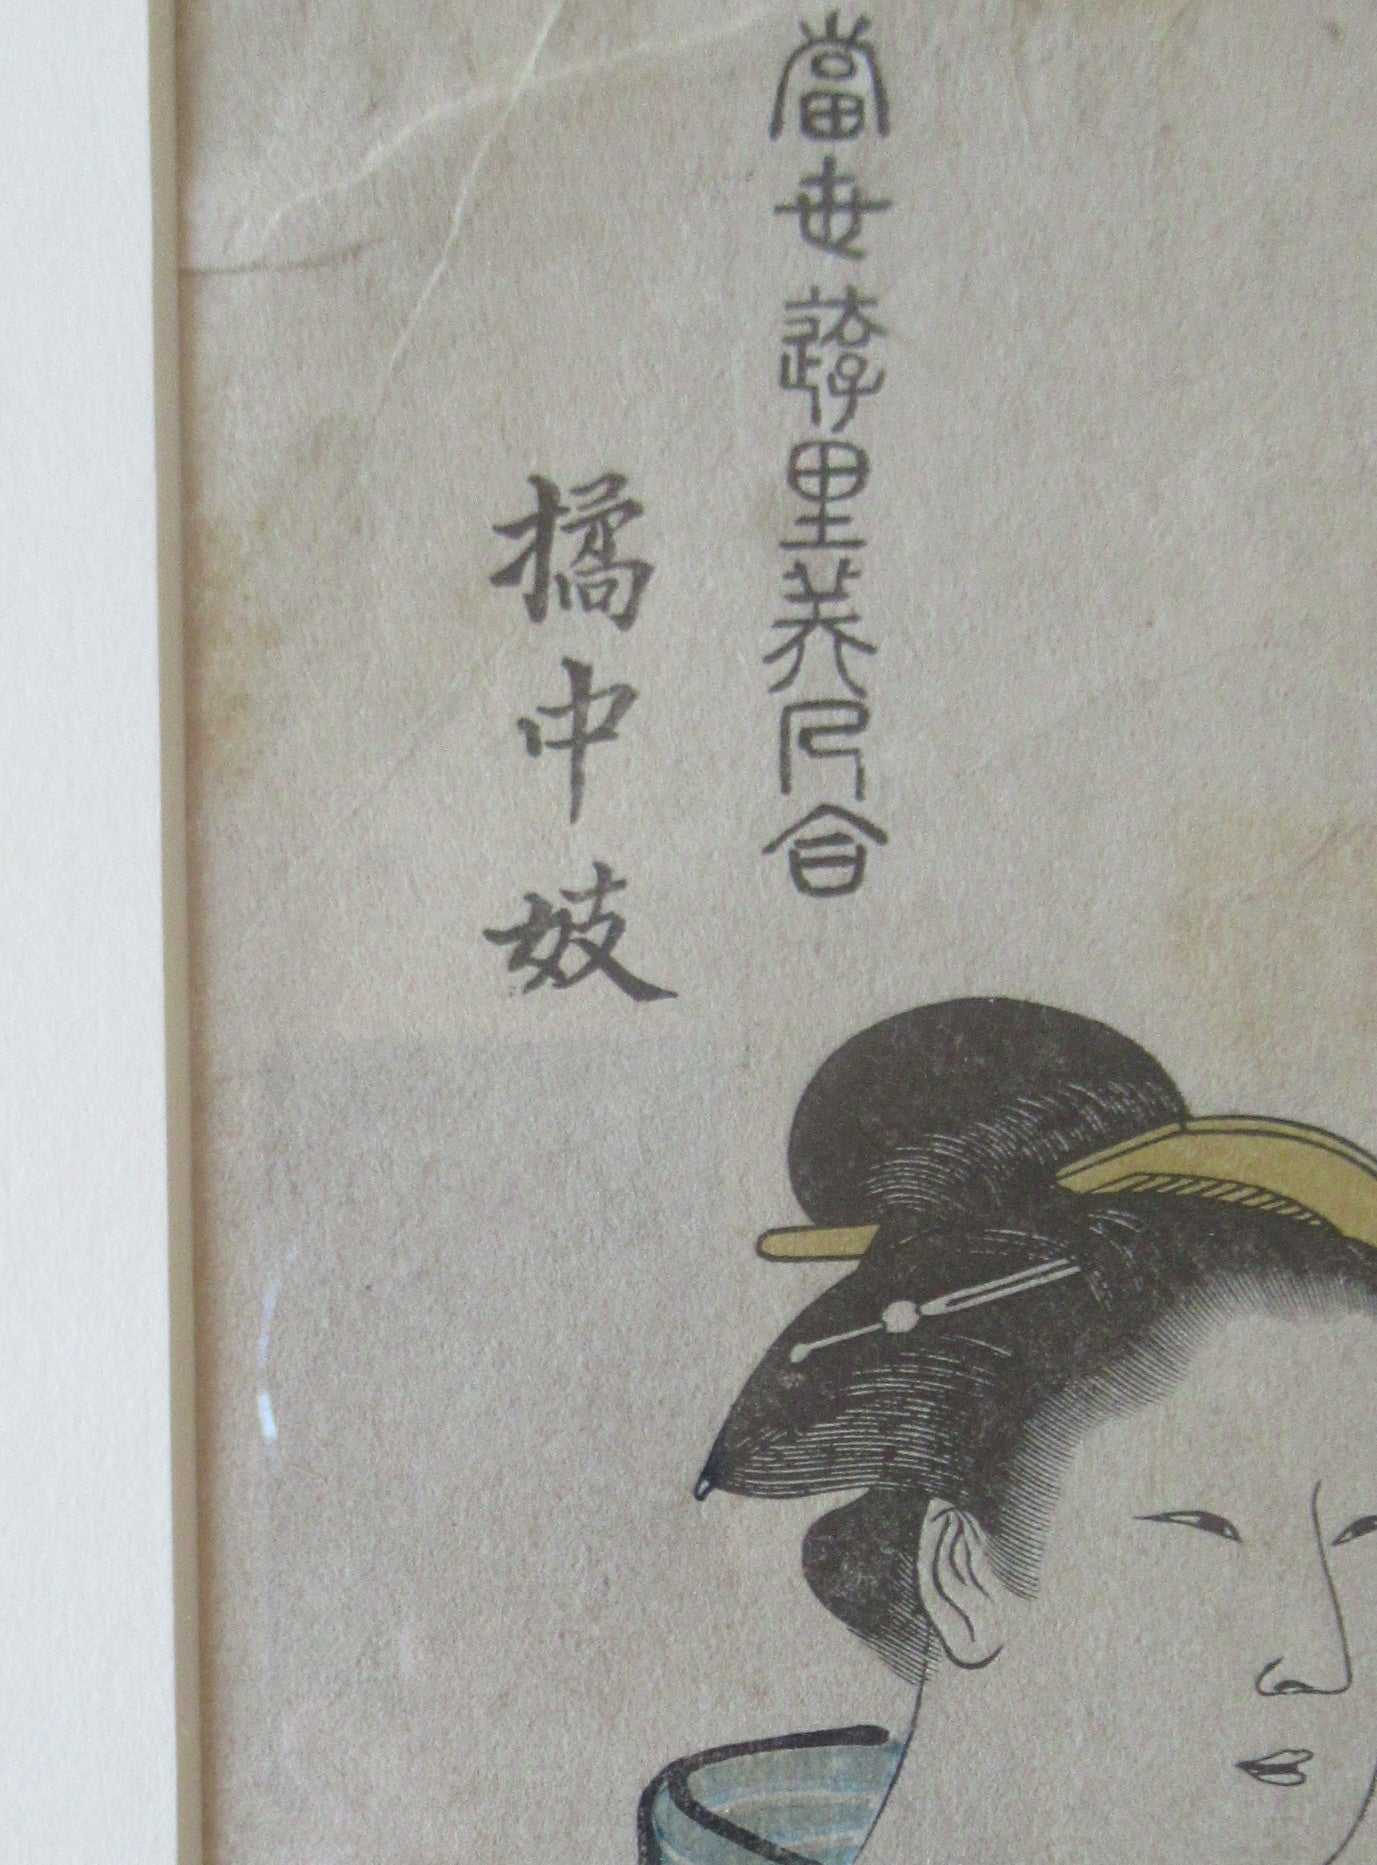 當世遊里美人合
橘中妓